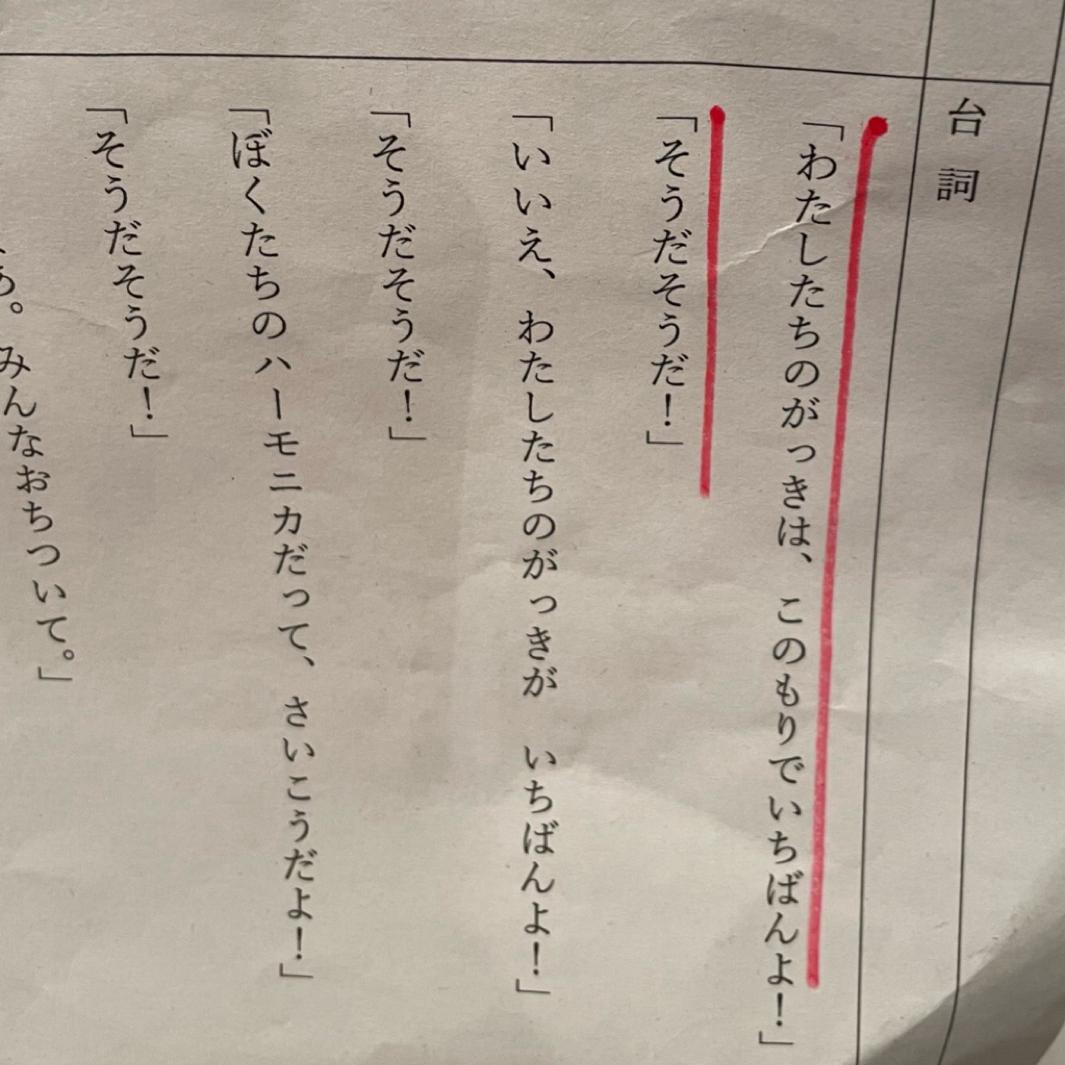 台詞
「わたしたちのがっきは、このもりでいちばんよ！」
「そうだそうだ！」
「いいえ、わたしたちのがっきが　いちばんよ！」
「そうだそうだ！」
「ぼくたちのハーモニカだって、さいこうだよ！」
「そうだそうだ！」
あ。みんなおちついて。」